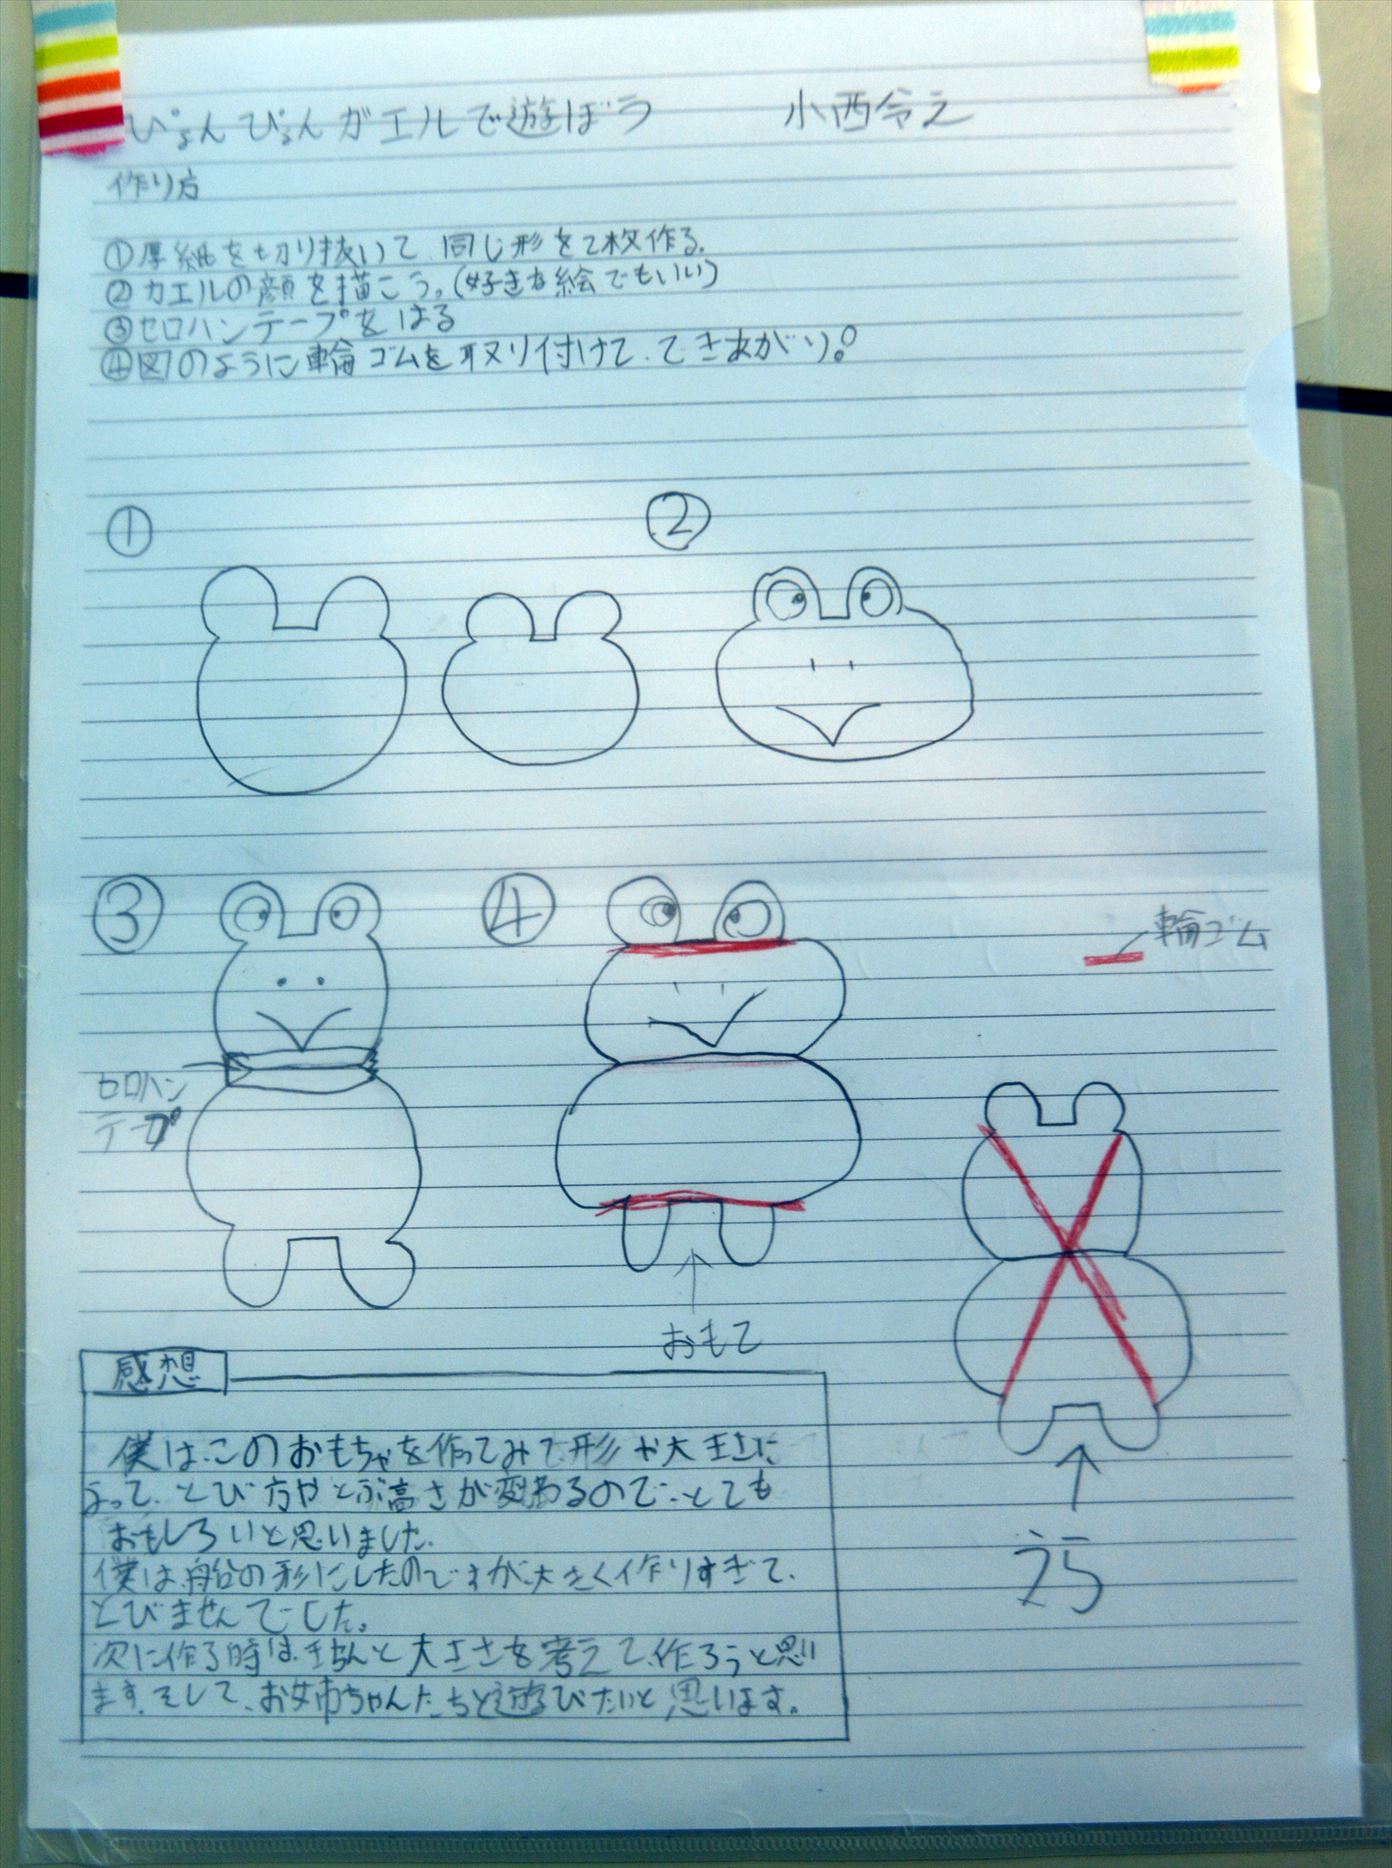 ぴょんぴょんガエルで遊ぼう 小西令之
作り方
①厚紙を切り抜いて、同じ形を2枚作る。
②カエルの顔を描こう。(好きな絵でもいい)
③セロハンテープをはる
④図のように輪ゴムを取り付けて、できあがり。
① ②
③ ④
輪ゴム
セロハン
テープ
おもて
うら
感想
僕は、このおもちゃを作ってみて、形や大きさに
よって、とび方やとぶ高さが変わるので、とても
おもしろいと思いました。
僕は、船の形にしたのですが、大きく作りすぎて、
とびませんでした。
次に作る時は、きちんと大きさを考えて、作ろうと思い
ます。そして、お姉ちゃんたちと遊びたいと思います。